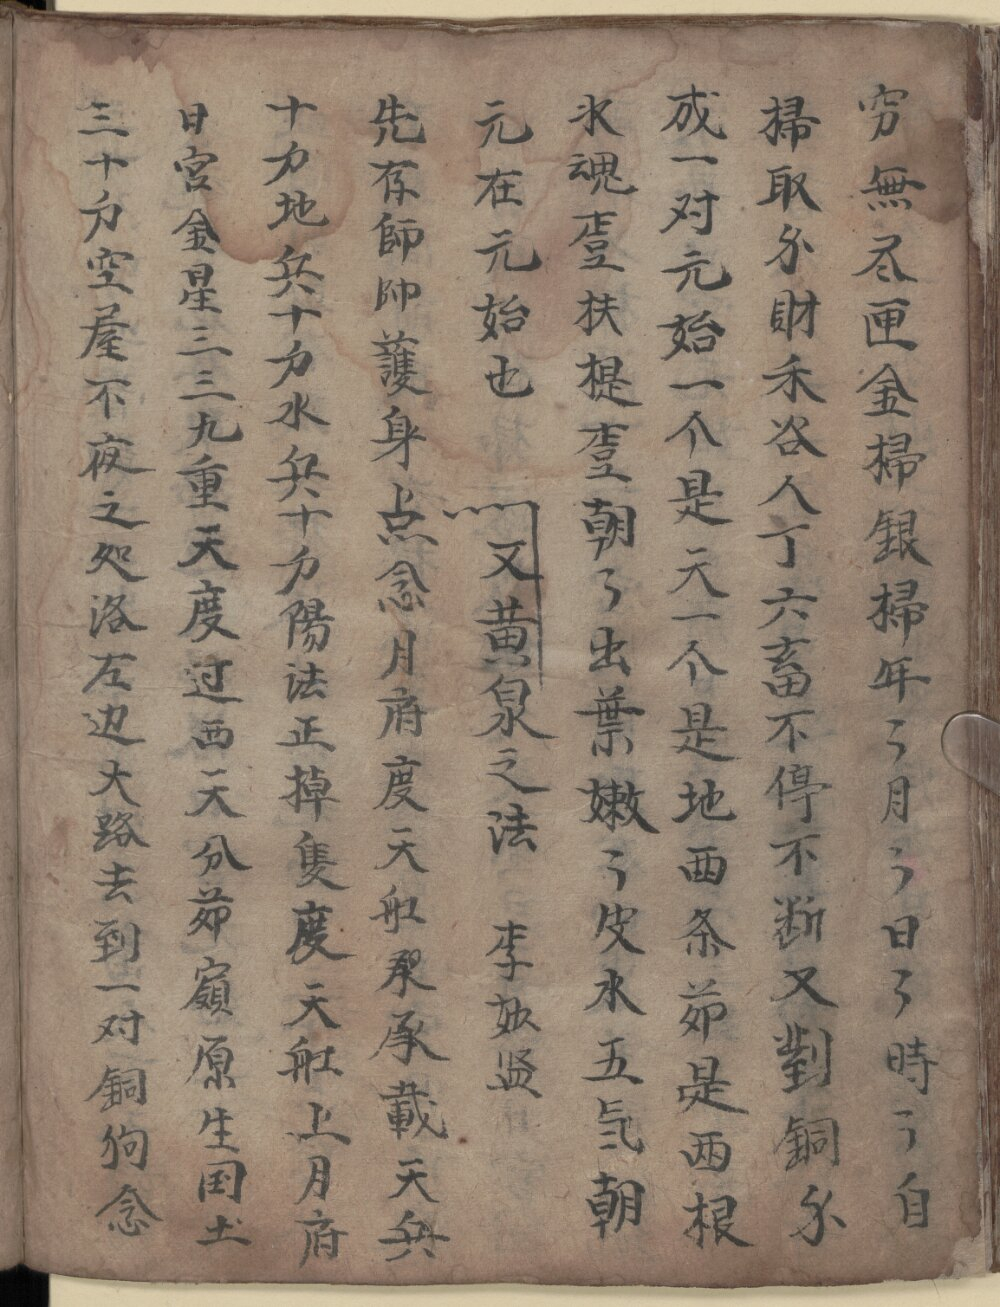 穷無尽匣金掃銀掃年々月々日々時々自
掃取分財禾谷人丁六畜不停不断又劄銅分
成一对元始一个是天一个是地西条茆是西根
氷魂壹扶提壹朝々出葉嫩々皮水五气朝
元在元始也
又黄泉之法 李奴赀
先存師帅護身点念月府度天舡来承載天兵
十力地兵十力水兵十力陽法正掉隻度天舡上月府
日宮金星三三九重天度过西天分茆嶺原生国土
三十力空屋不夜之处洛左边大路去到一对銅狗念